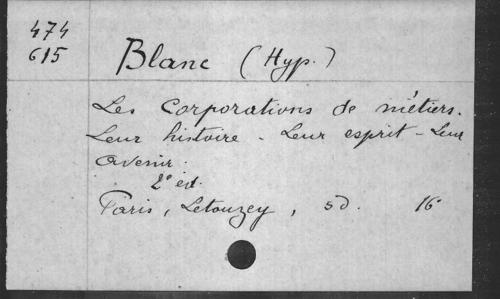 474
615
Blanc (Hyp.)
Les Corporations de métiers.
Leur histoire - Leur esprit - Leur
avenir.
2e éd.
Paris, Letouzey, s d. 16°